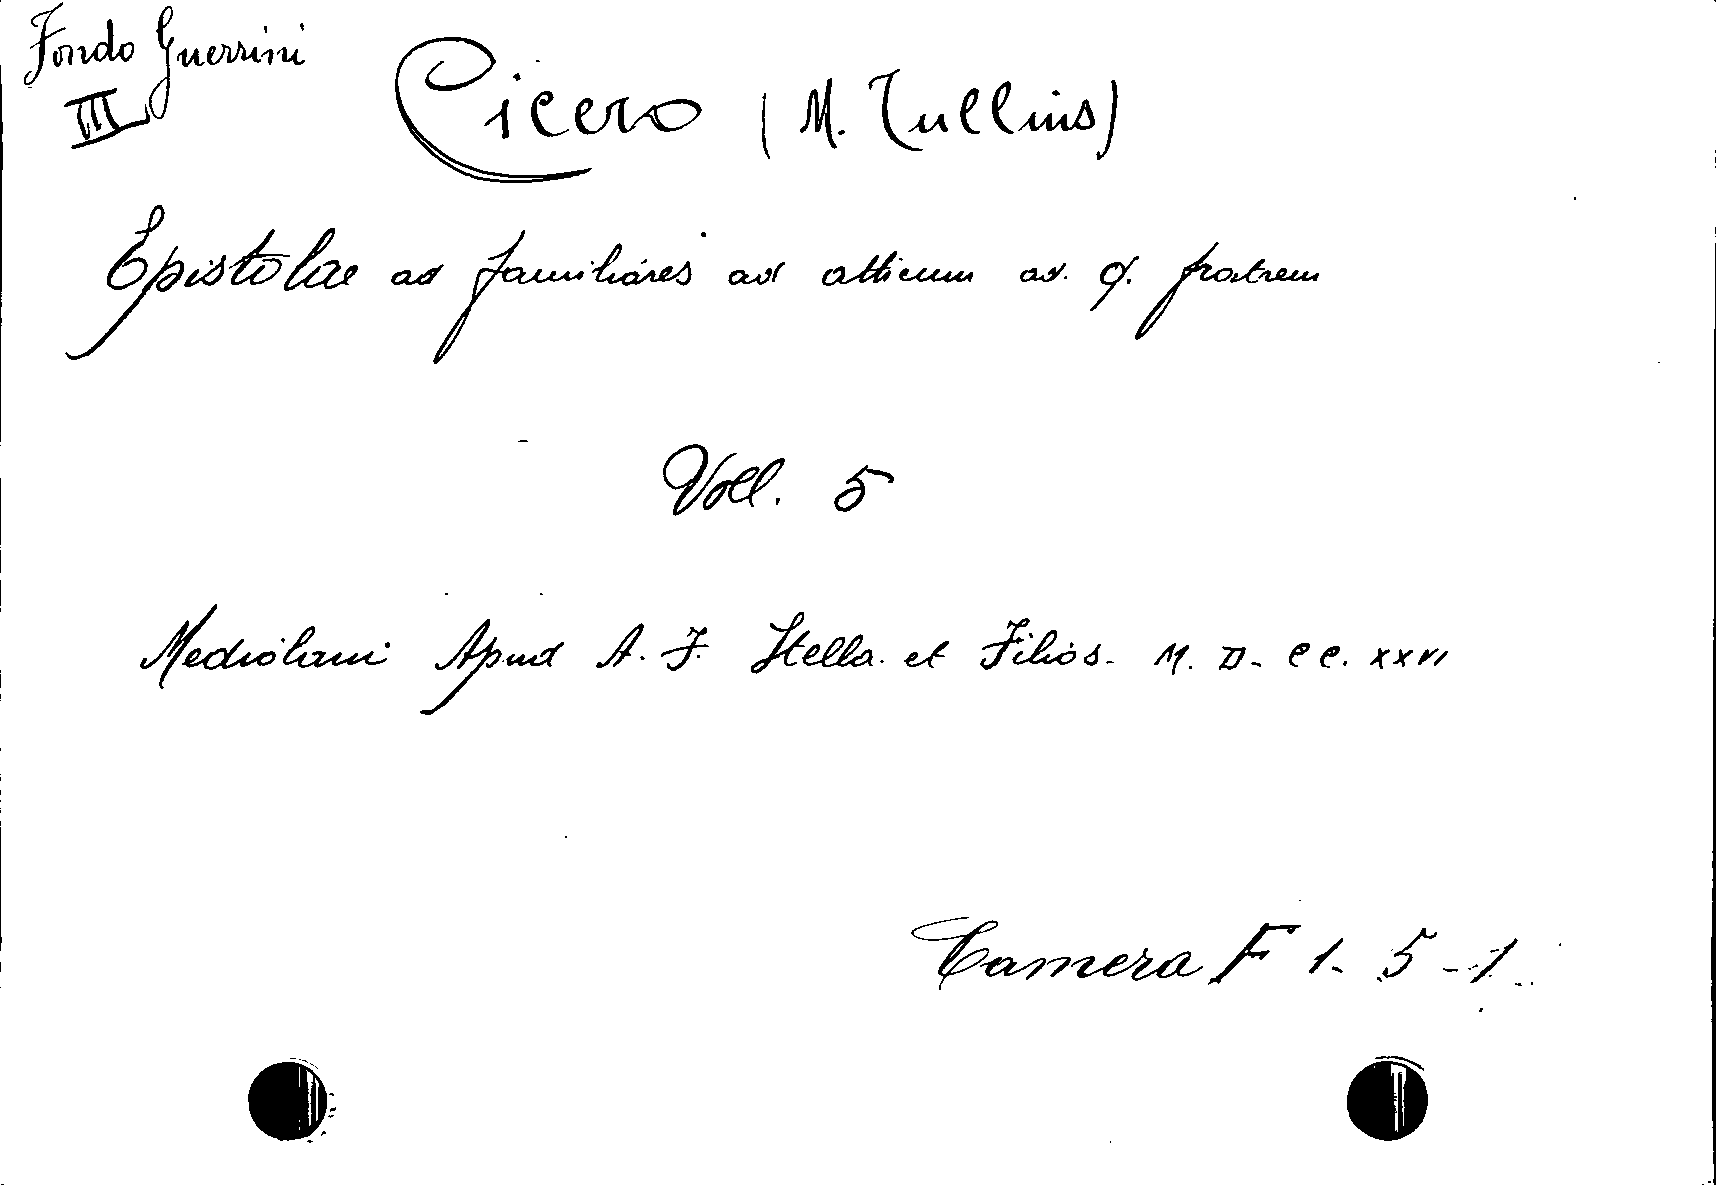 Fondo Guerrini
III
Cicero (M. Tullius)
Epistolae ad familiares ad atticum ad. Q. fratrem
Voll. 5
Mediolani Apud A. F. Stella. et Filios - M. D - CC. XXVI
Camera F 1 - 5 - 1